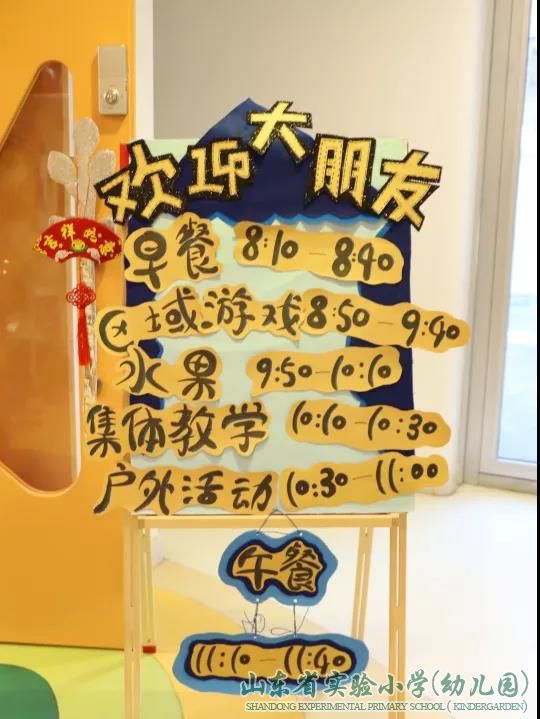 欢迎大朋友
吉祥如意
早餐 8:10—8:40
区域游戏 8:50—9:40
水果 9:50—10:10
集体教学 10:10—10:30
户外活动 10:30—11:00
午餐
11:10—11:40
山东省实验小学(幼儿园)
SHANDONG EXPERIMENTAL PRIMARY SCHOOL ( KINDERGARDEN)